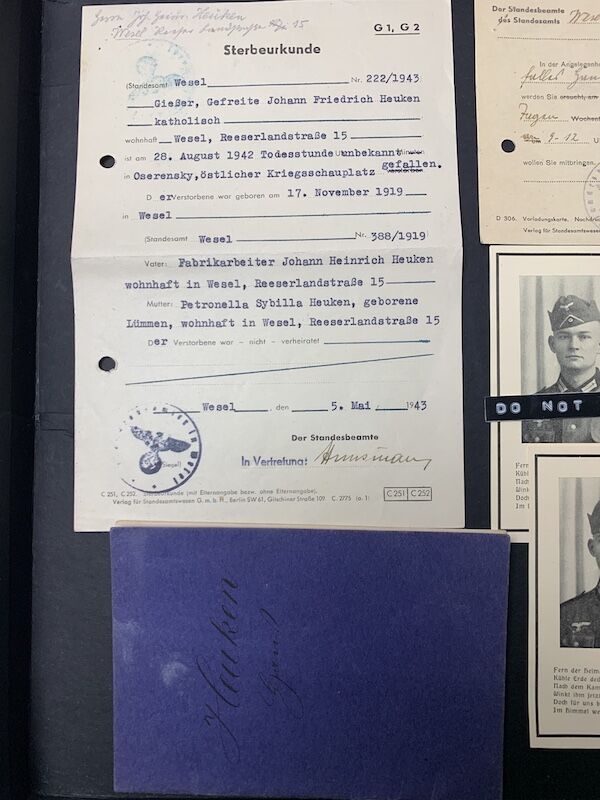 Herrn Joh. Heinr. Heuken
Wesel Reeser Landstraße No 15
G 1, G 2
Sterbeurkunde
(Standesamt Wesel Nr. 222/1943)
Gießer, Gefreite Johann Friedrich Heuken
katholisch
wohnhaft Wesel, Reeserlandstraße 15
ist am 28. August 1942 Todesstunde unbekannt Minuten
in Oserensky, östlicher Kriegsschauplatz gefallen. verstorben
D er Verstorbene war geboren am 17. November 1919
in Wesel
(Standesamt Wesel Nr. 388/1919)
Vater: Fabrikarbeiter Johann Heinrich Heuken
wohnhaft in Wesel, Reeserlandstraße 15
Mutter: Petronella Sybilla Heuken, geborene
Lümmen, wohnhaft in Wesel, Reeserlandstraße 15
Der Verstorbene war - nicht - verheiratet
Wesel, den 5. Mai 1943
Der Standesbeamte
(Siegel)
In Vertretung:
C 251, C 252. Sterbeurkunde (mit Elternangabe bezw. ohne Elternangabe).
Verlag für Standesamtswesen G. m. b. H., Berlin SW 61, Gitschiner Straße 109 C. 2775 (a. 1)
C 251 C 252
Heuken
Der Standesbeamte
des Standesamts Wese
In der Angelegenhe
werden Sie ersucht, am
Zeugen Wochent
am 9-12 U
wollen Sie mitbringen.
D 306. Vorladungskarte. Nachdru
Verlag für Standesamtswesen
DO NOT
Fern
Kühl
Nach
Winkt
Doch
Im H
Fern der Heima
Kühle Erde ded
Nach dem Kam
Winkt ihm jetz
Doch für uns b
Im Himmel we